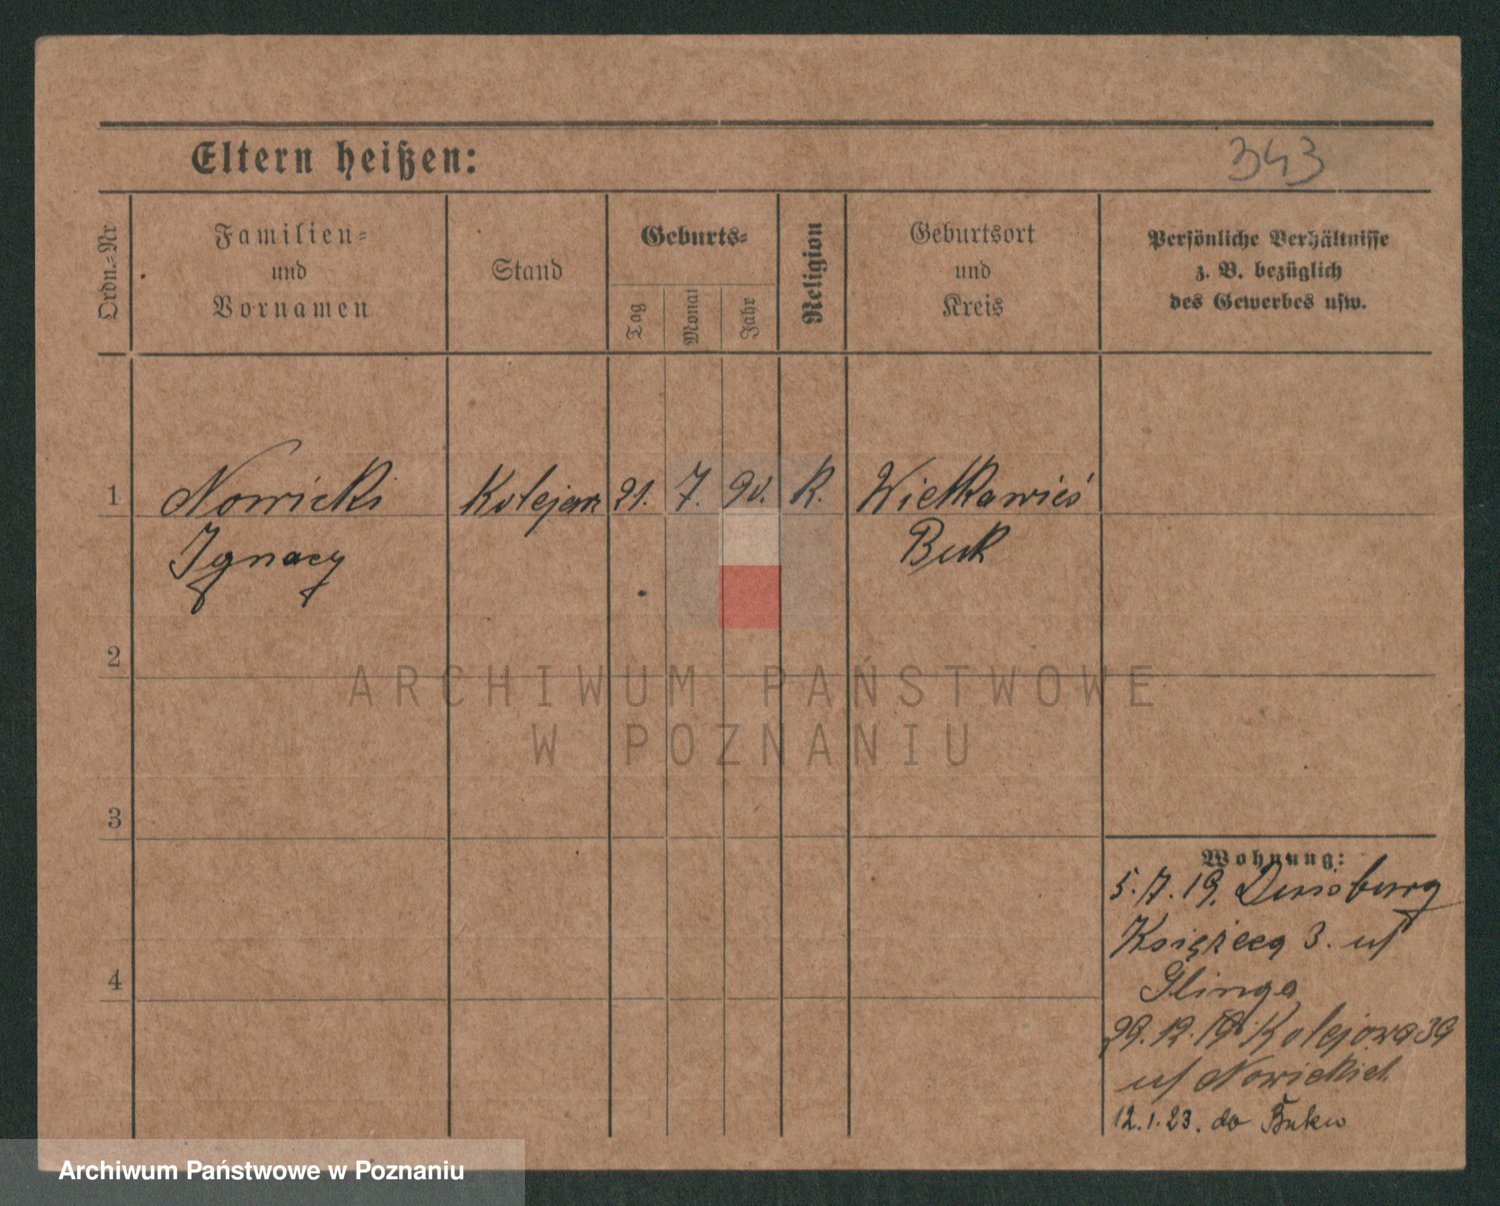 Eltern heißen:
343
Ordn.=Nr
Familien=
und
Vornamen
Stand
Geburts=
Tag
Monat
Jahr
Religion
Geburtsort
und
Kreis
Persönliche Verhältnisse
z. B. bezüglich
des Gewerbes usw.
1 Nowicki Kolejarz 21. 7. 90. K. Wielkawieś
Ignacy Buk
2
3
4
Wohnung:
5.7.19. Duisburg
Książęca 3. u/
Glinga
29.12.19. Kolejowa 39
u/ Nowickich
12.1.23. do Buku
ARCHIWUM PAŃSTWOWE
W POZNANIU
Archiwum Państwowe w Poznaniu